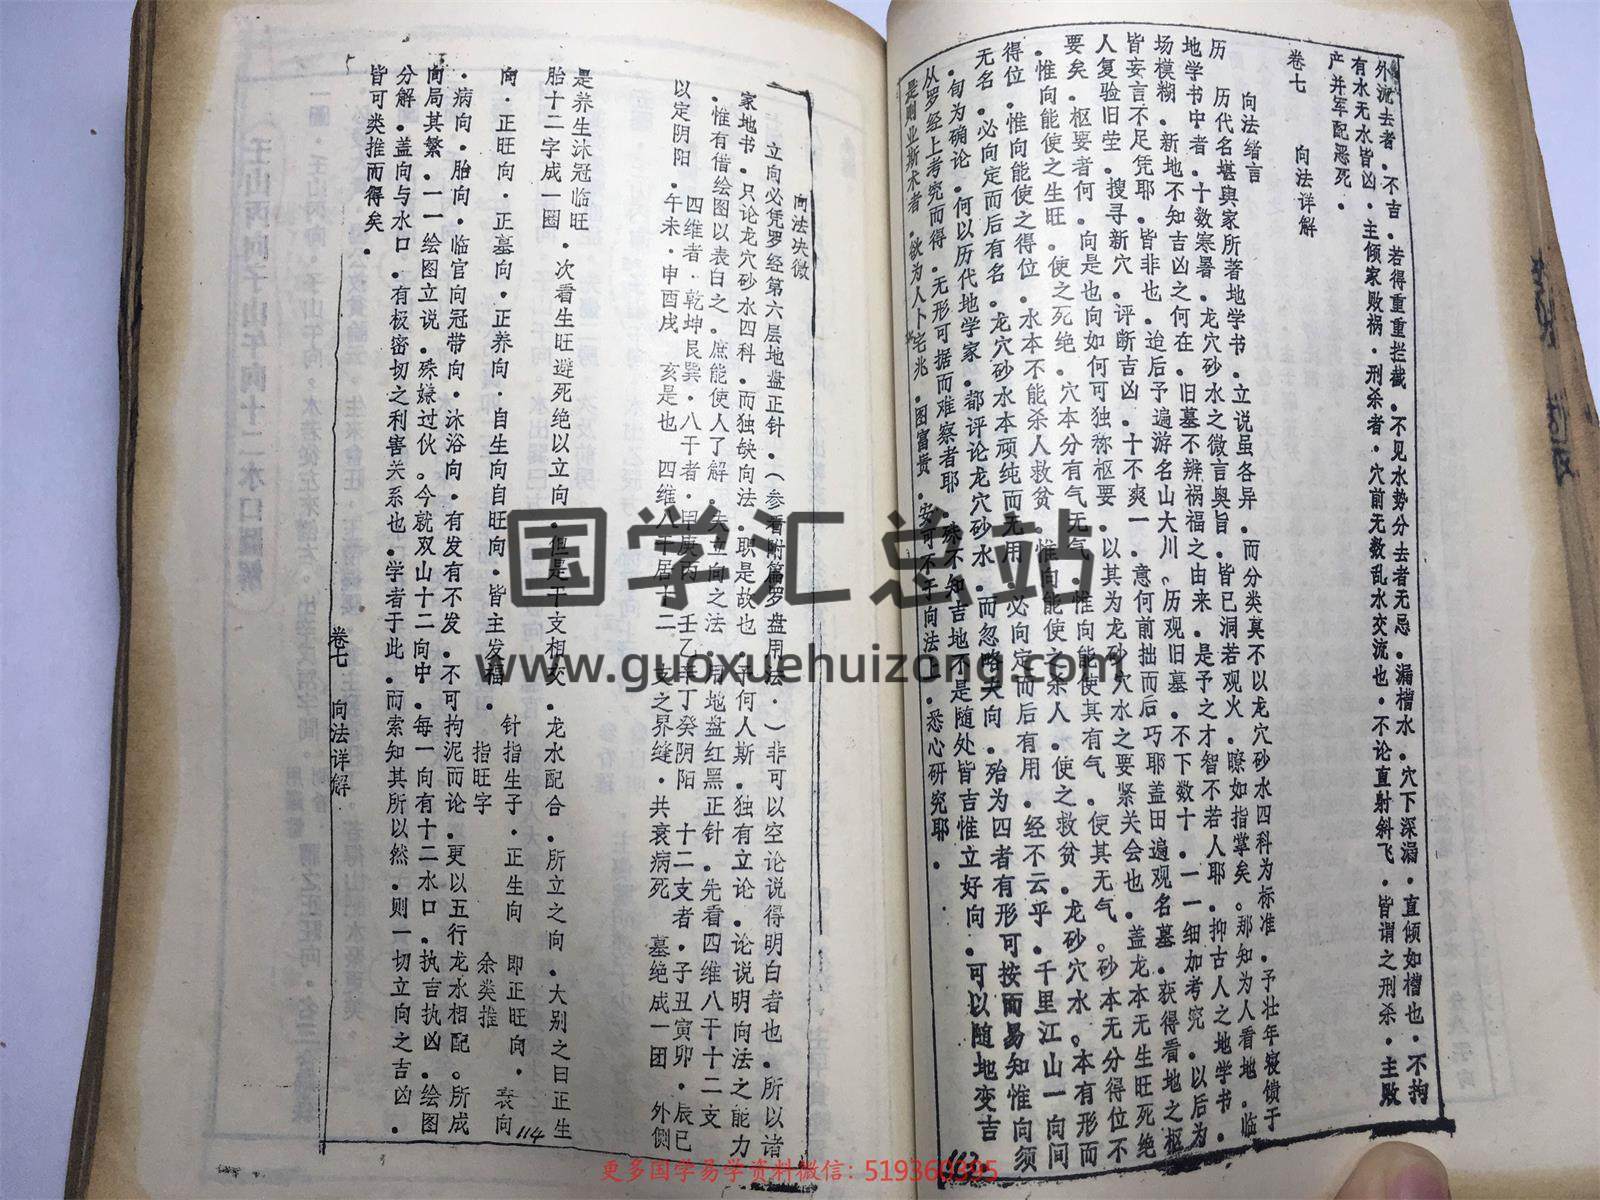 外流去者．不吉．若得重重拦截．不见水势分去者无忌．漏槽水．穴下深漏．直倾如槽也．不拘
有水无水皆凶．主倾家败祸．刑杀者．穴前无数乱水交流也．不论直射斜飞．皆谓之刑杀．主败
产并军配恶死．
卷七 向法详解
向法绪言
历代名堪舆家所著地学书．立说虽各异．而分类莫不以龙穴砂水四科为标准．予壮年寝馈于
地学书中者．十数寒暑．龙穴砂水之微言奥旨．皆已洞若观火．瞭如指掌矣。那知为人看地．临
场模糊．新地不知吉凶之何在．旧墓不辨祸福之由来．是予之才智不若人耶．抑古人之地学书．
皆妄言不足凭耶．皆非也．迨后予遍游名山大川。历观旧墓．不下数十．一一细加考究．以后为
人复验旧茔．搜寻新穴．评断吉凶．十不爽一．意何前拙而后巧耶盖田遍观名墓．获得看地之枢
要矣．枢要者何．向是也向如何可独称枢要．以其为龙砂穴水之要紧关会也．盖龙本无生旺死绝
．惟向能使之生旺．使之死绝．穴本分有气无气．惟向能使其有气．使其无气。砂本无分得位不
得位．惟向能使之得位．水本不能杀人救贫．惟向能使之杀人．使之救贫．龙砂穴水。本有形而
无名．必向定而后有名．龙穴砂水本顽纯而无用．必向定而后有用．经不云乎．千里江山一向间
．旬为确论．何以历代地学家．都评论龙穴砂水．而忽略夫向．殆为四者有形可按而易知惟向须
从罗经上考究而得．无形可据而难察者耶 殊不知吉地不是随处皆吉惟立好向．可以随地变吉
是则业斯术者．欲为人卜宅兆．图富贵．安可不于向法一．悉心研究耶．
113
向法决微
立向必凭罗经第六层地盘正针．（参看附篇罗盘用法．）非可以空论说得明白者也．所以诸
家地书．只论龙穴砂水四科．而独缺向法．职是故也．予何人斯．独有立论．论说明向法之能力
．惟有借绘图以表白之．庶能使人了解．夫立向之法．用地盘红黑正针．先看四维八干十二支
以定阴阳．四维者．乾坤艮巽．八干者．甲庚丙．壬乙辛丁癸阴阳 十二支者．子丑寅卯．辰已
．午未．申酉戌．亥是也 四维八干居十二 支之界缝．共衰病死 墓绝成一团 外侧
是养生沐冠临旺．次看生旺避死绝以立向．但是干支相交．龙水配合．所立之向．大别之曰正生
胎十二字成一圈
向．正旺向．正墓向．正养向．自生向自旺向．皆主发福． 针指生子．正生向 即正旺向．衰向
指旺字 余类推
．病向．胎向．临官向冠带向．沐浴向．有发有不发．不可拘泥而论．更以五行龙水相配．所成
向局其繁．一一绘图立说．殊嫌过伙。今就双山十二向中．每一向有十二水口．执吉执凶．绘图
分解．盖向与水口．有极密切之利害关系也．学者于此．而索知其所以然．则一切立向之吉凶．
皆可类推而得矣．
卷七 向法详解
114
国学汇总站
www.guoxuehuizong.com
更多国学易学资料微信：519360395